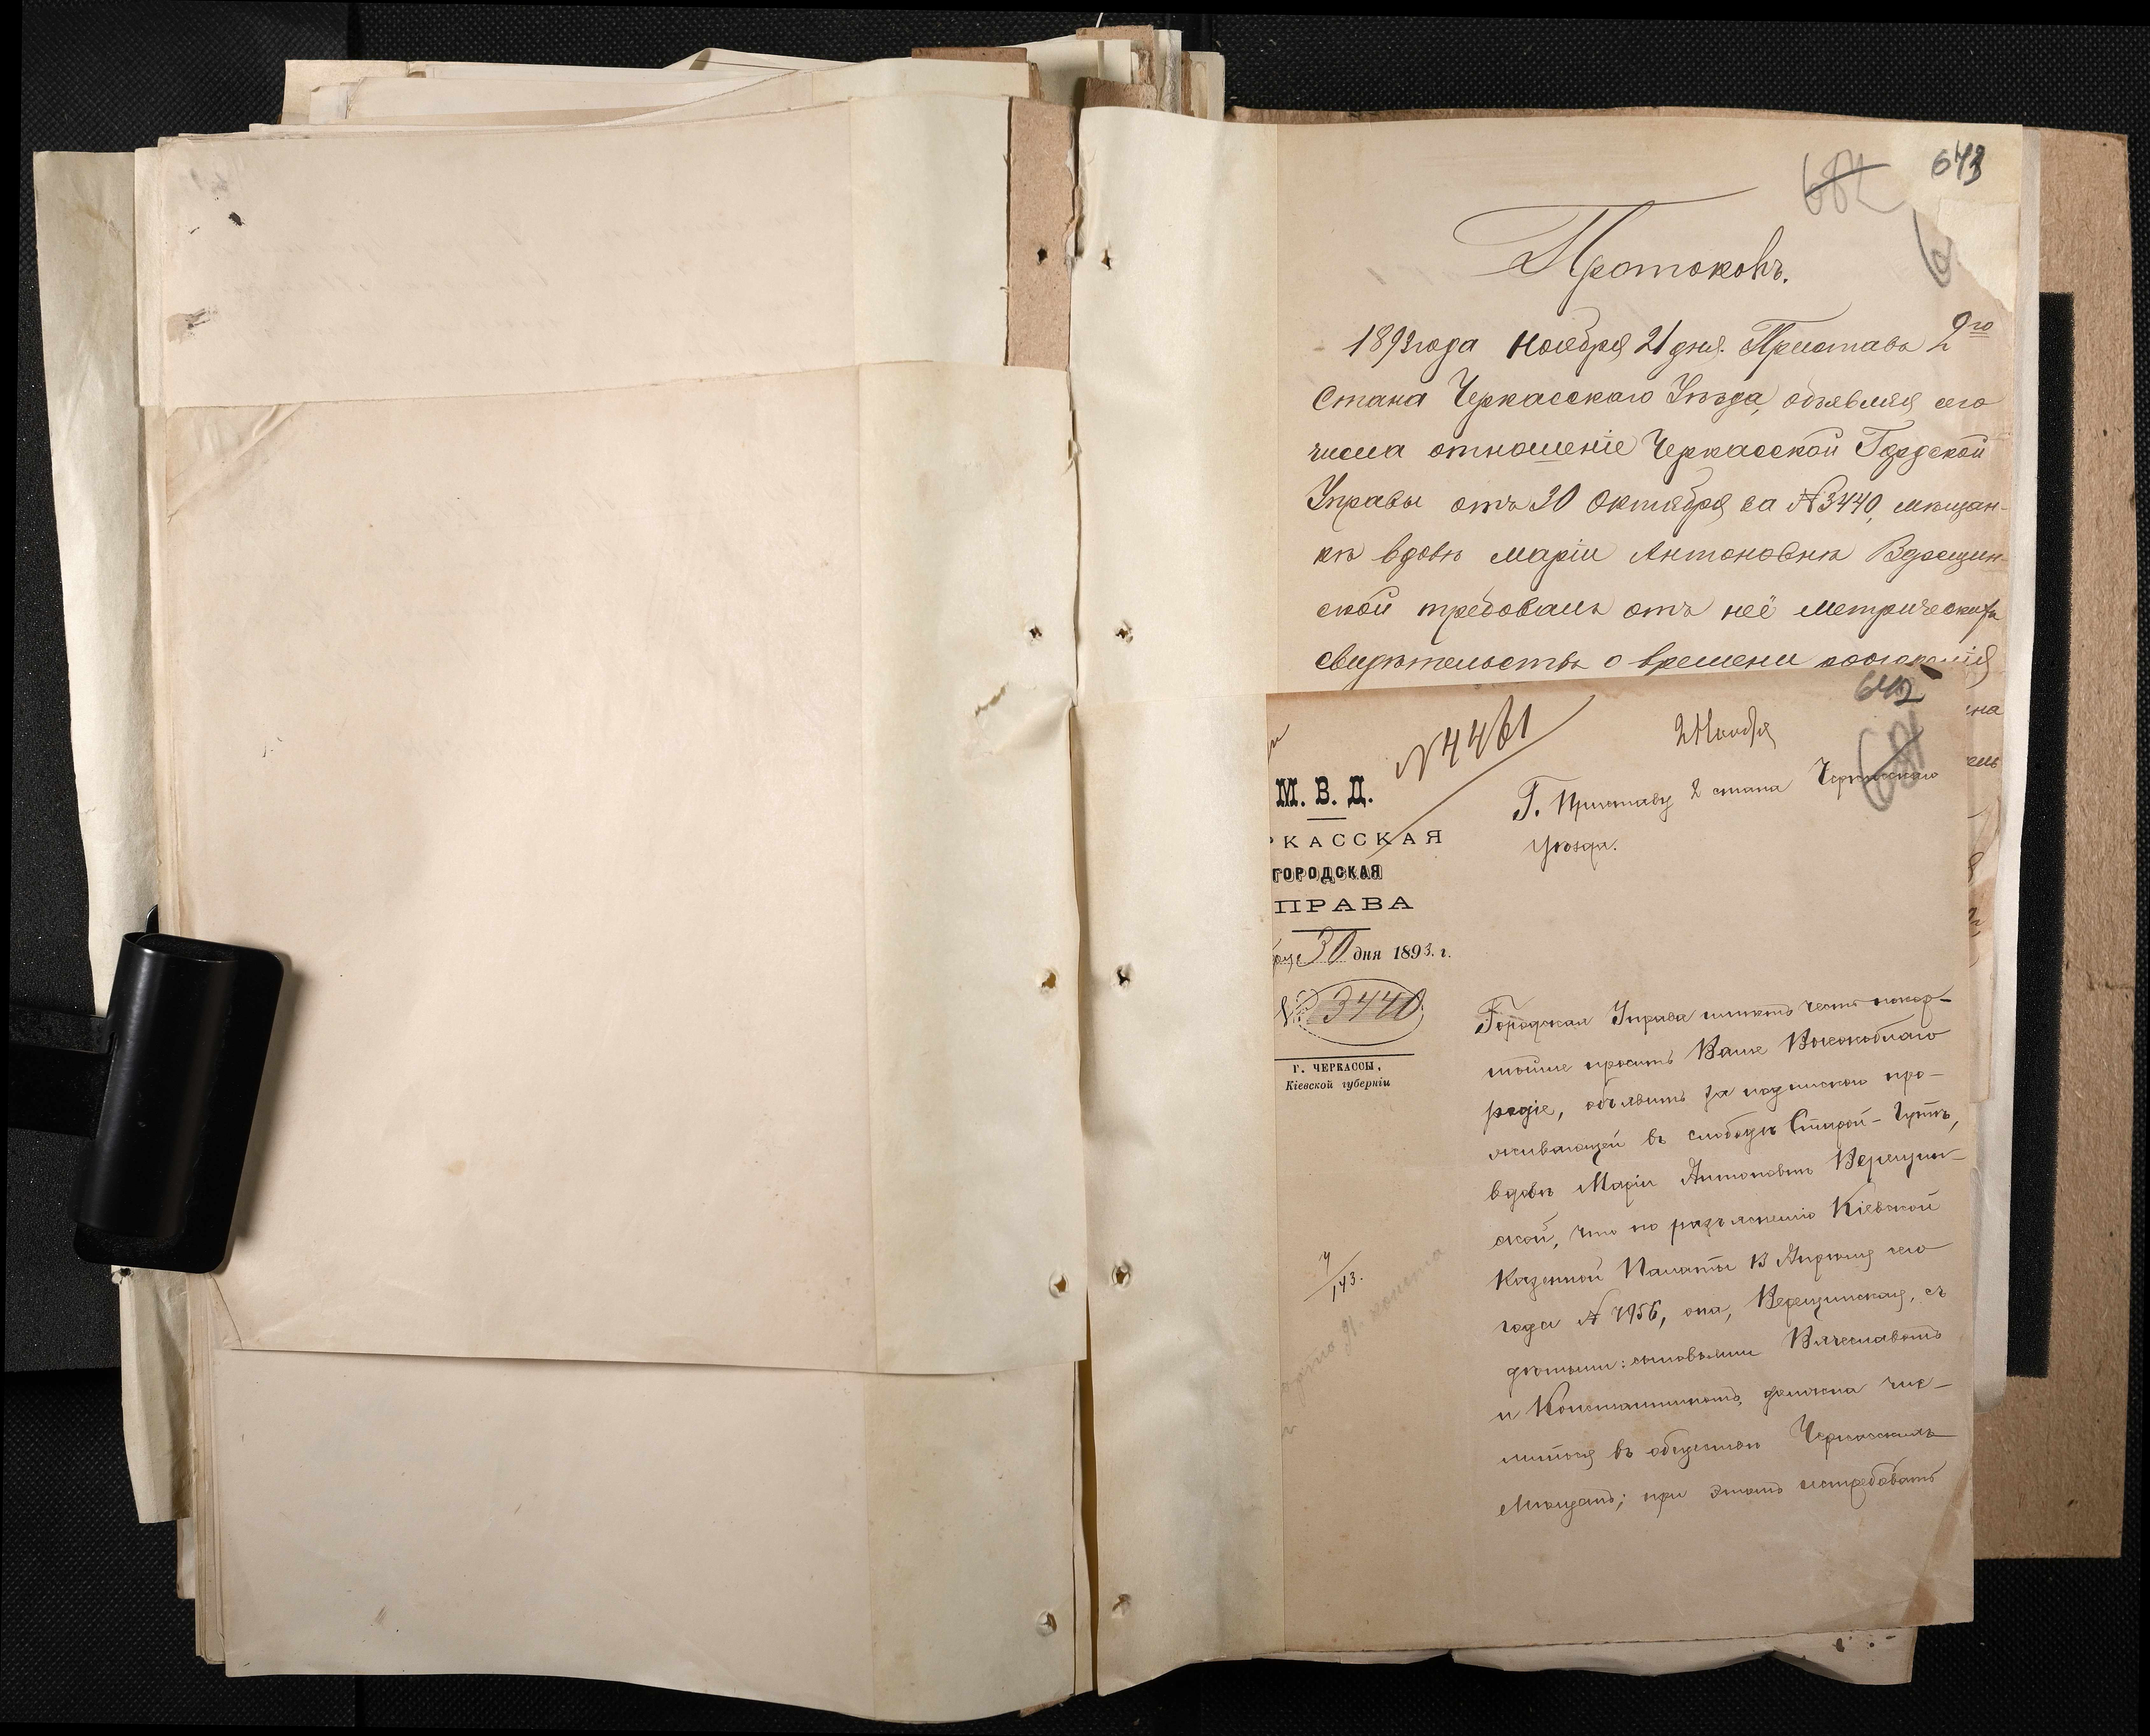 673
Протоколъ.
1893 года Ноября 21 дня. Приставъ 2го
Стана Черкасскаго Уѣзда, объявляя сего
числа отношеніе Черкасской Городской
Управы отъ 30 Октября за №3440, мѣщан-
кѣ вдовѣ Маріи Антоновнѣ Верещин-
ской требовалъ отъ неё метрическихъ
свидѣтельствъ о времени
642
№4461
2 Ноября
М. В. Д.
РКАССКАЯ
ГОРОДСКАЯ
ПРАВА
30 дня 1893. г.
№ 3440
Г. ЧЕРКАССЫ,
Кіевской губерніи
Г. Приставу 2 стана Черкасскаго
уѣзда.
Городская Управа имѣетъ честь покор-
нѣйше просить Ваше Высокоблаго
родіе, объявить за подпискою про-
живающей въ слободѣ Старой-Гутѣ,
вдовѣ Маріи Антоновнѣ Верещин-
ской, что по разъясненію Кіевской
Казенной Палаты 13 Апрѣля сего
года № 7956, она, Верещинская, съ
дѣтьми: сыновьями Вячеславомъ
и Константиномъ, должна чис-
литься въ обществѣ Черкасскихъ
Мѣщанъ; при этомъ истребовать